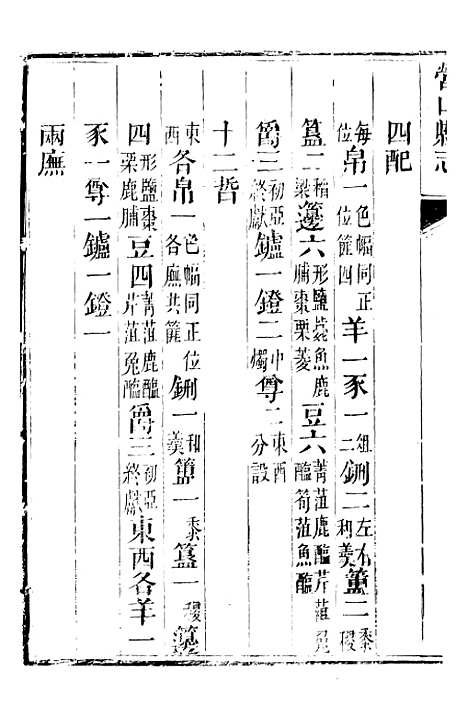 營山縣志
四配
每位帛一色幅同正位篚四羊一豕一俎二鉶二左右利羹簠二黍稷
簋二稻粱籩六形鹽薧魚鹿脯棗栗菱豆六菁菹鹿醢芹菹兔醢筍菹魚醢
爵三初亞終獻鑪一鐙二中燭尊二東西分設
十二哲
東西各帛一色幅同正位各廡共篚鉶一和羹簠一黍簋一稷籩
四形鹽棗栗鹿脯豆四菁菹鹿醢芹菹兔醢爵三初亞終獻東西各羊一
豕一尊一鑪一鐙一
兩廡